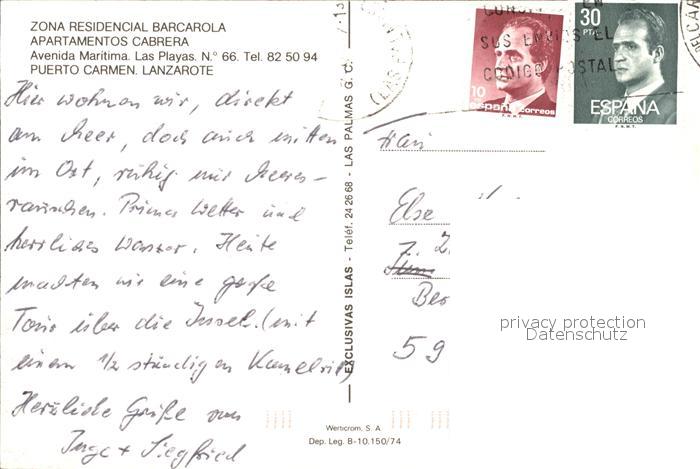 ZONA RESIDENCIAL BARCAROLA
APARTAMENTOS CABRERA
Avenida Marítima. Las Playas. N.° 66. Tel. 82 50 94
PUERTO CARMEN. LANZAROTE
Hier wohnen wir, direkt
am Meer, doch auch mitten
im Ort, ruhig mit Meeres-
rauschen. Prima Wetter und
herrliches Wasser. Heute
machten wir eine große
Tour über die Insel. (mit
einem 1/2 stündigen Kamelritt)
Herzliche Grüße von
Inge + Siegfried
EXCLUSIVAS ISLAS - Teléf. 24 26 68 - LAS PALMAS G. C.
(LAS PAL
EN
SUS ENVIOS EL
CODIGO POSTAL
10
españa correos
F.N.M.T.
30
PTA
ESPAÑA
CORREOS
F.N.M.T.
Frau
Else
Z.
Beo
59
privacy protection
Datenschutz
Werticrom, S. A
Dep. Leg. B-10.150/74